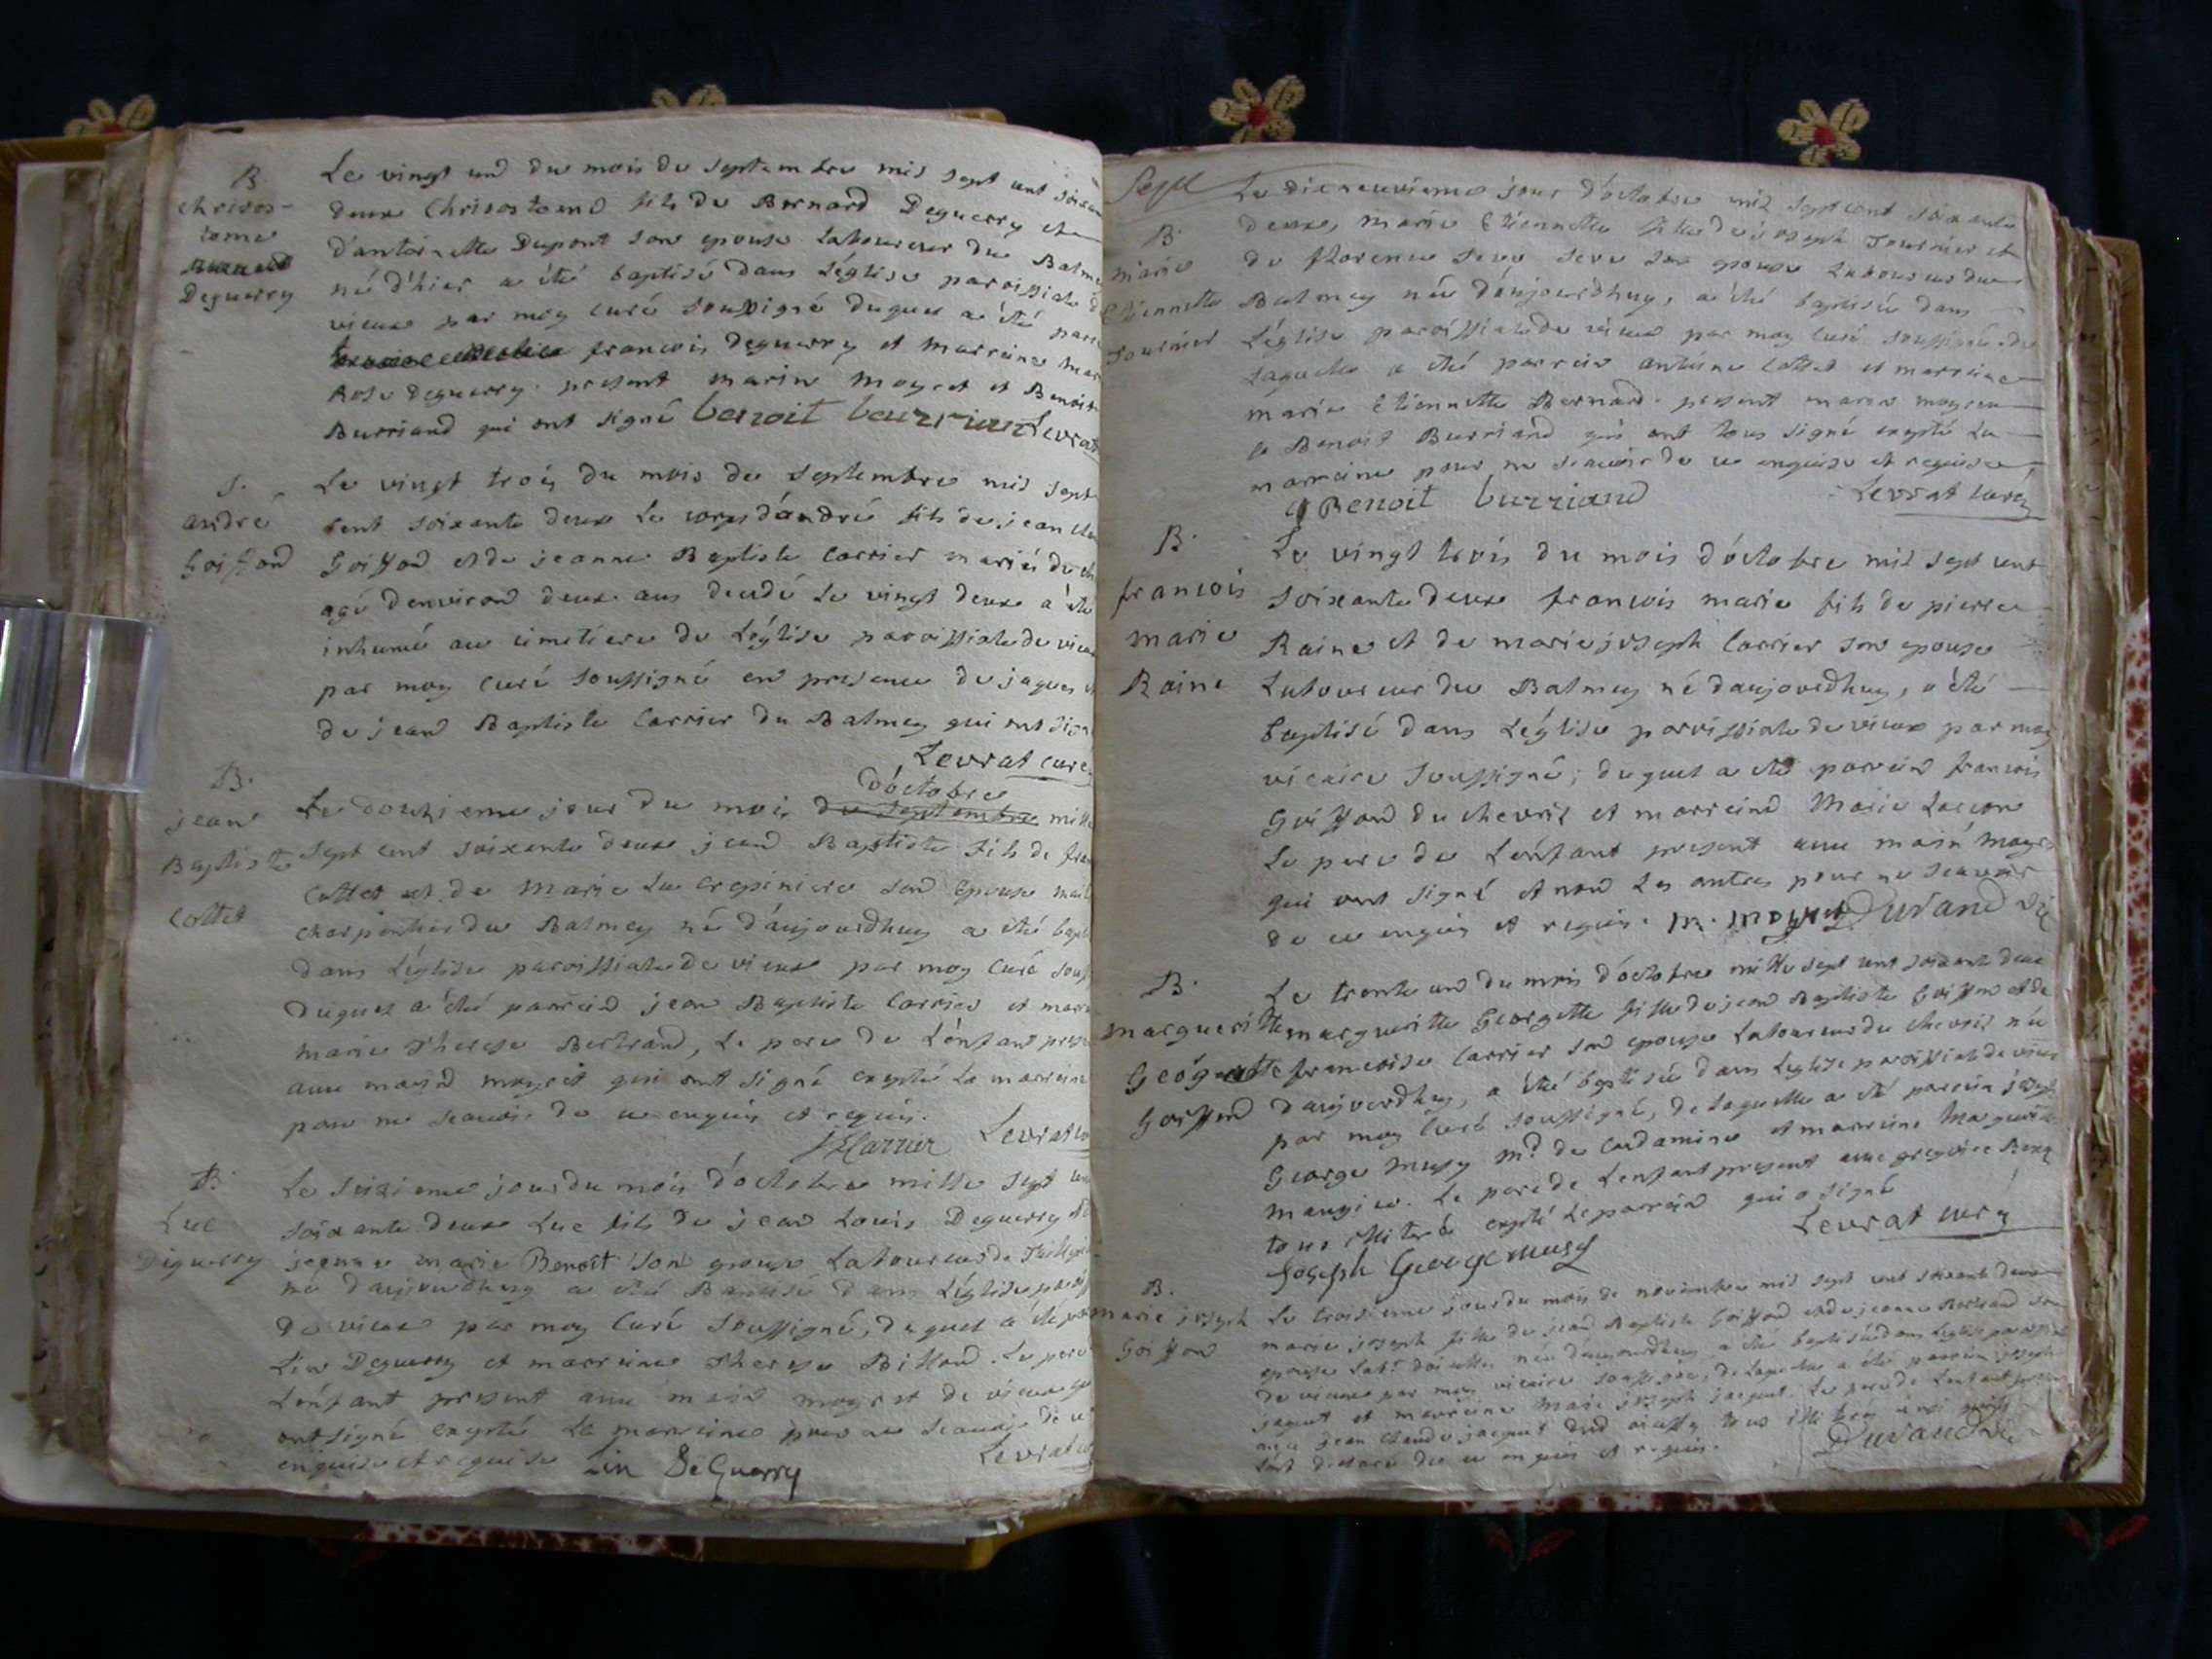 B.
chrisos-
tome
Bernard
Deguerry
Le vingt und du mois de septembre mil sept cent soixan
deux Chrisostome fils de Bernard Deguerry et
d'antoinette Dupont son epouse Laboureur du Balmey
né d'hier a été baptisé dans L'église paroissiale de
vieux par moy curé soussigné duquel a été parr
francois Deguerry et marreine mar
Rose Deguerry. present marin moyret et Benoit
Burriand qui ont signé benoit burriand Levrat
S.
andré
Goiffond
Le vingt trois du mois de septembre mil sept
cent soixante deux Le corps d'andré fils de jean clau
Goiffod et de jeanne Baptiste Carrier mariés du ch
agé denviron deux ans decedé Le vingt deux a été
inhumé au cimetiere de L'église paroissiale de vieux
par moy curé soussigné en presence de jaques et
de jean Baptiste Carrier du Balmey qui ont signé
Levrat curé
B.
jean
Baptiste
Cottet
d'octobre
Le douzieme jour du mois de septembre mille
sept cent soixante deux jean Baptiste fils de fran
Cottet et de Marie La crepiniere son epouse mait
charpentier du Balmey né d'aujourdhuy a été bapt
dans L'église paroissiale de vieux par moy Curé souss
duquel a été parrein jean Baptiste Carrier et marr
marie Therese Bertrand, Le pere de L'enfant prese
avec marin moyret qui ont signé exepté La marreine
pour ne scauoir de ce enquis et requis.
JB Carrier Levrat cu
B.
Luc
Deguerry
Le seizieme jour du mois d'octobre mille sept cent
soixante deux Luc fils de jean Louis Deguerry et de
jeanne marie Benoît son epouse Laboureur de
né daujourdhuy a été Baptisé dans L'église paroiss
de vieux par moy Curé soussigné, duquel a été parr
Lin Deguerry et marreine Therese Billon. Le pere
L'enfant present avec marin moyret de vieux qui
ont signé exepté La marreine pour ne scauoir de ce
enquise et requise Lin DeGuerry Levrat cu
Sepse
B.
marie
Etiennette
Tournier
Le dixneuvieme jour d'octobre mil sept cent soixante
deux, marie Etiennette fille de joseph Tournier et
de florence Seve Seve son epouse Laboureur du
Balmey née d'aujourdhuy, a été baptisée dans
L'église paroissiale de vieux par moy curé soussigné. de
Laquelle a été parrein antoine Cottet et marreine
marie Etiennette Bernard. present marin moyret
et Benoit Burriand qui ont tous signé exepté La
marreine pour ne scauoir de ce enquise et requise
Benoit burriand Levrat curé
B.
francois
marie
Raine
Le vingt trois du mois d'octobre mil sept cent
soixante deux francois marie fils de pierre
Raine et de marie joseph Carrier son epouse
Laboureur du Balmey né daujourdhuy, a été
baptisé dans L'église paroissiale de vieux par moy
vicaire soussigné; duquel a été parrein francois
Goiffond du chevril et marreind Marie
Le pere de L'enfant present avec marin Moyret
qui ont signé et non Les autres pour ne scavoir
de ce enquis et requis. M. Moyret Durand vic
B.
marguerite
Georgette
Goiffond
Le trente un du mois d'octobre mille sept cent soixante deux
marguerite Georgette fille de jean Baptiste Goiffon et de
francoise Carrier son epouse Laboureur du chevril née
daujourdhuy, a été baptisée dans Leglise paroissiale de vieux
par moy Curé soussigné, de Laquelle a été parrein joseph
George musy md. de Cerdamine et marreine Marguerite
mangier. Le pere de Lenfant present avec gregoire
tous illiteré exepté Le parrein qui a signé
Joseph George musy Levrat curé
B.
marie joseph
Goiffon
Le troisieme jour du mois de novembre mil sept cent soixante deux
marie joseph fille de jean Baptiste Goiffond et de jeanne Bertrand son
epouse Labr. née daujourdhuy a été baptisée dans Leglise paroissiale
de vieux par moy vicaire soussigné, de Laquelle a été parrein joseph
jaquet et marreine Marie joseph jaquet. Le pere de Lenfant present
avec jean Claude jaquet tous illiteré ainsi qu'ils
lont declaré de ce enquis et requis. Durand vic